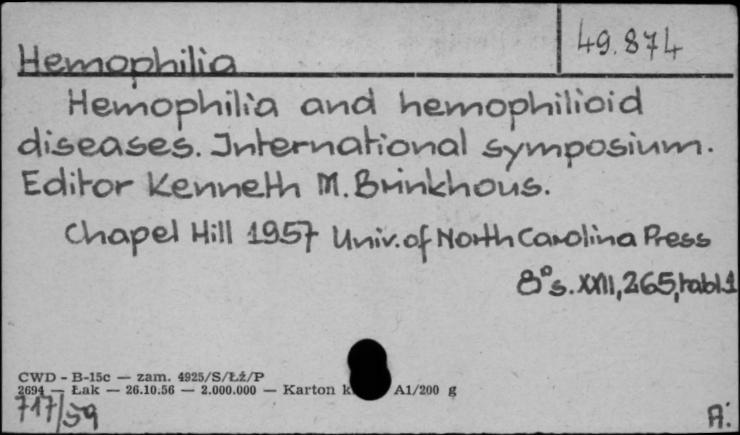 Hemophilia
49.874
Hemophilia and hemophilioid
diseases. International symposium.
Editor Kenneth M. Brinkhous.
Chapel Hill 1957 Univ. of North Carolina Press
8° s. XXII, 265, tabl. 1
CWD - B-15c — zam. 4925/S/Łź/P
2694 — Łak — 26.10.56 — 2.000.000 — Karton A1/200 g
717/59
A.